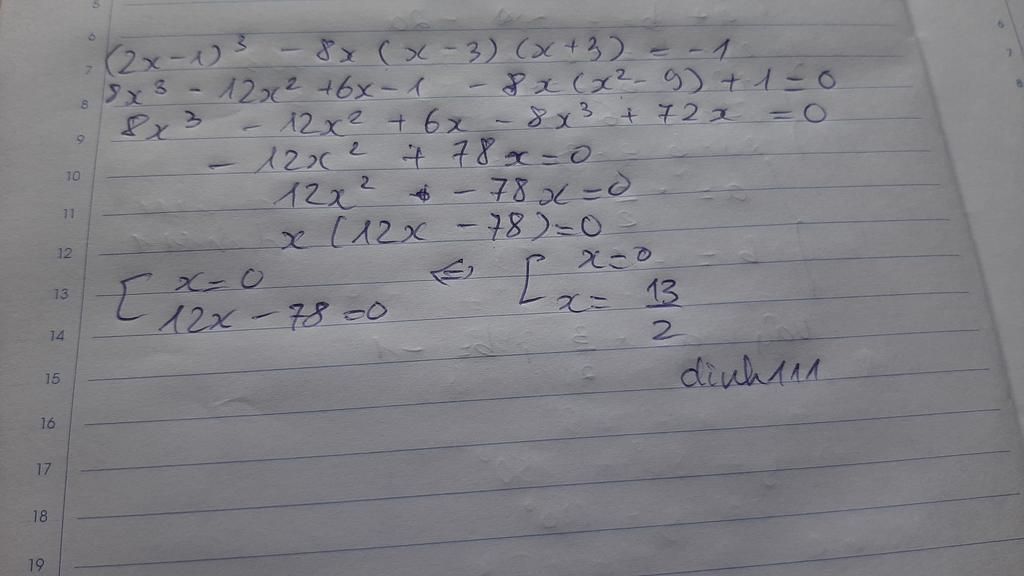 5
6
7 (2x-1)³ - 8x (x-3) (x+3) = -1
8 8x³ - 12x² + 6x - 1 - 8x (x² - 9) + 1 = 0
9 8x³ - 12x² + 6x - 8x³ + 72x = 0
10 - 12x² + 78x = 0
11 12x² - 78x = 0
12 x (12x - 78) = 0
13 [ x = 0 <=> [ x = 0
14 12x - 78 = 0 x = 13/2
15 dinh111
16
17
18
19
6
7
8